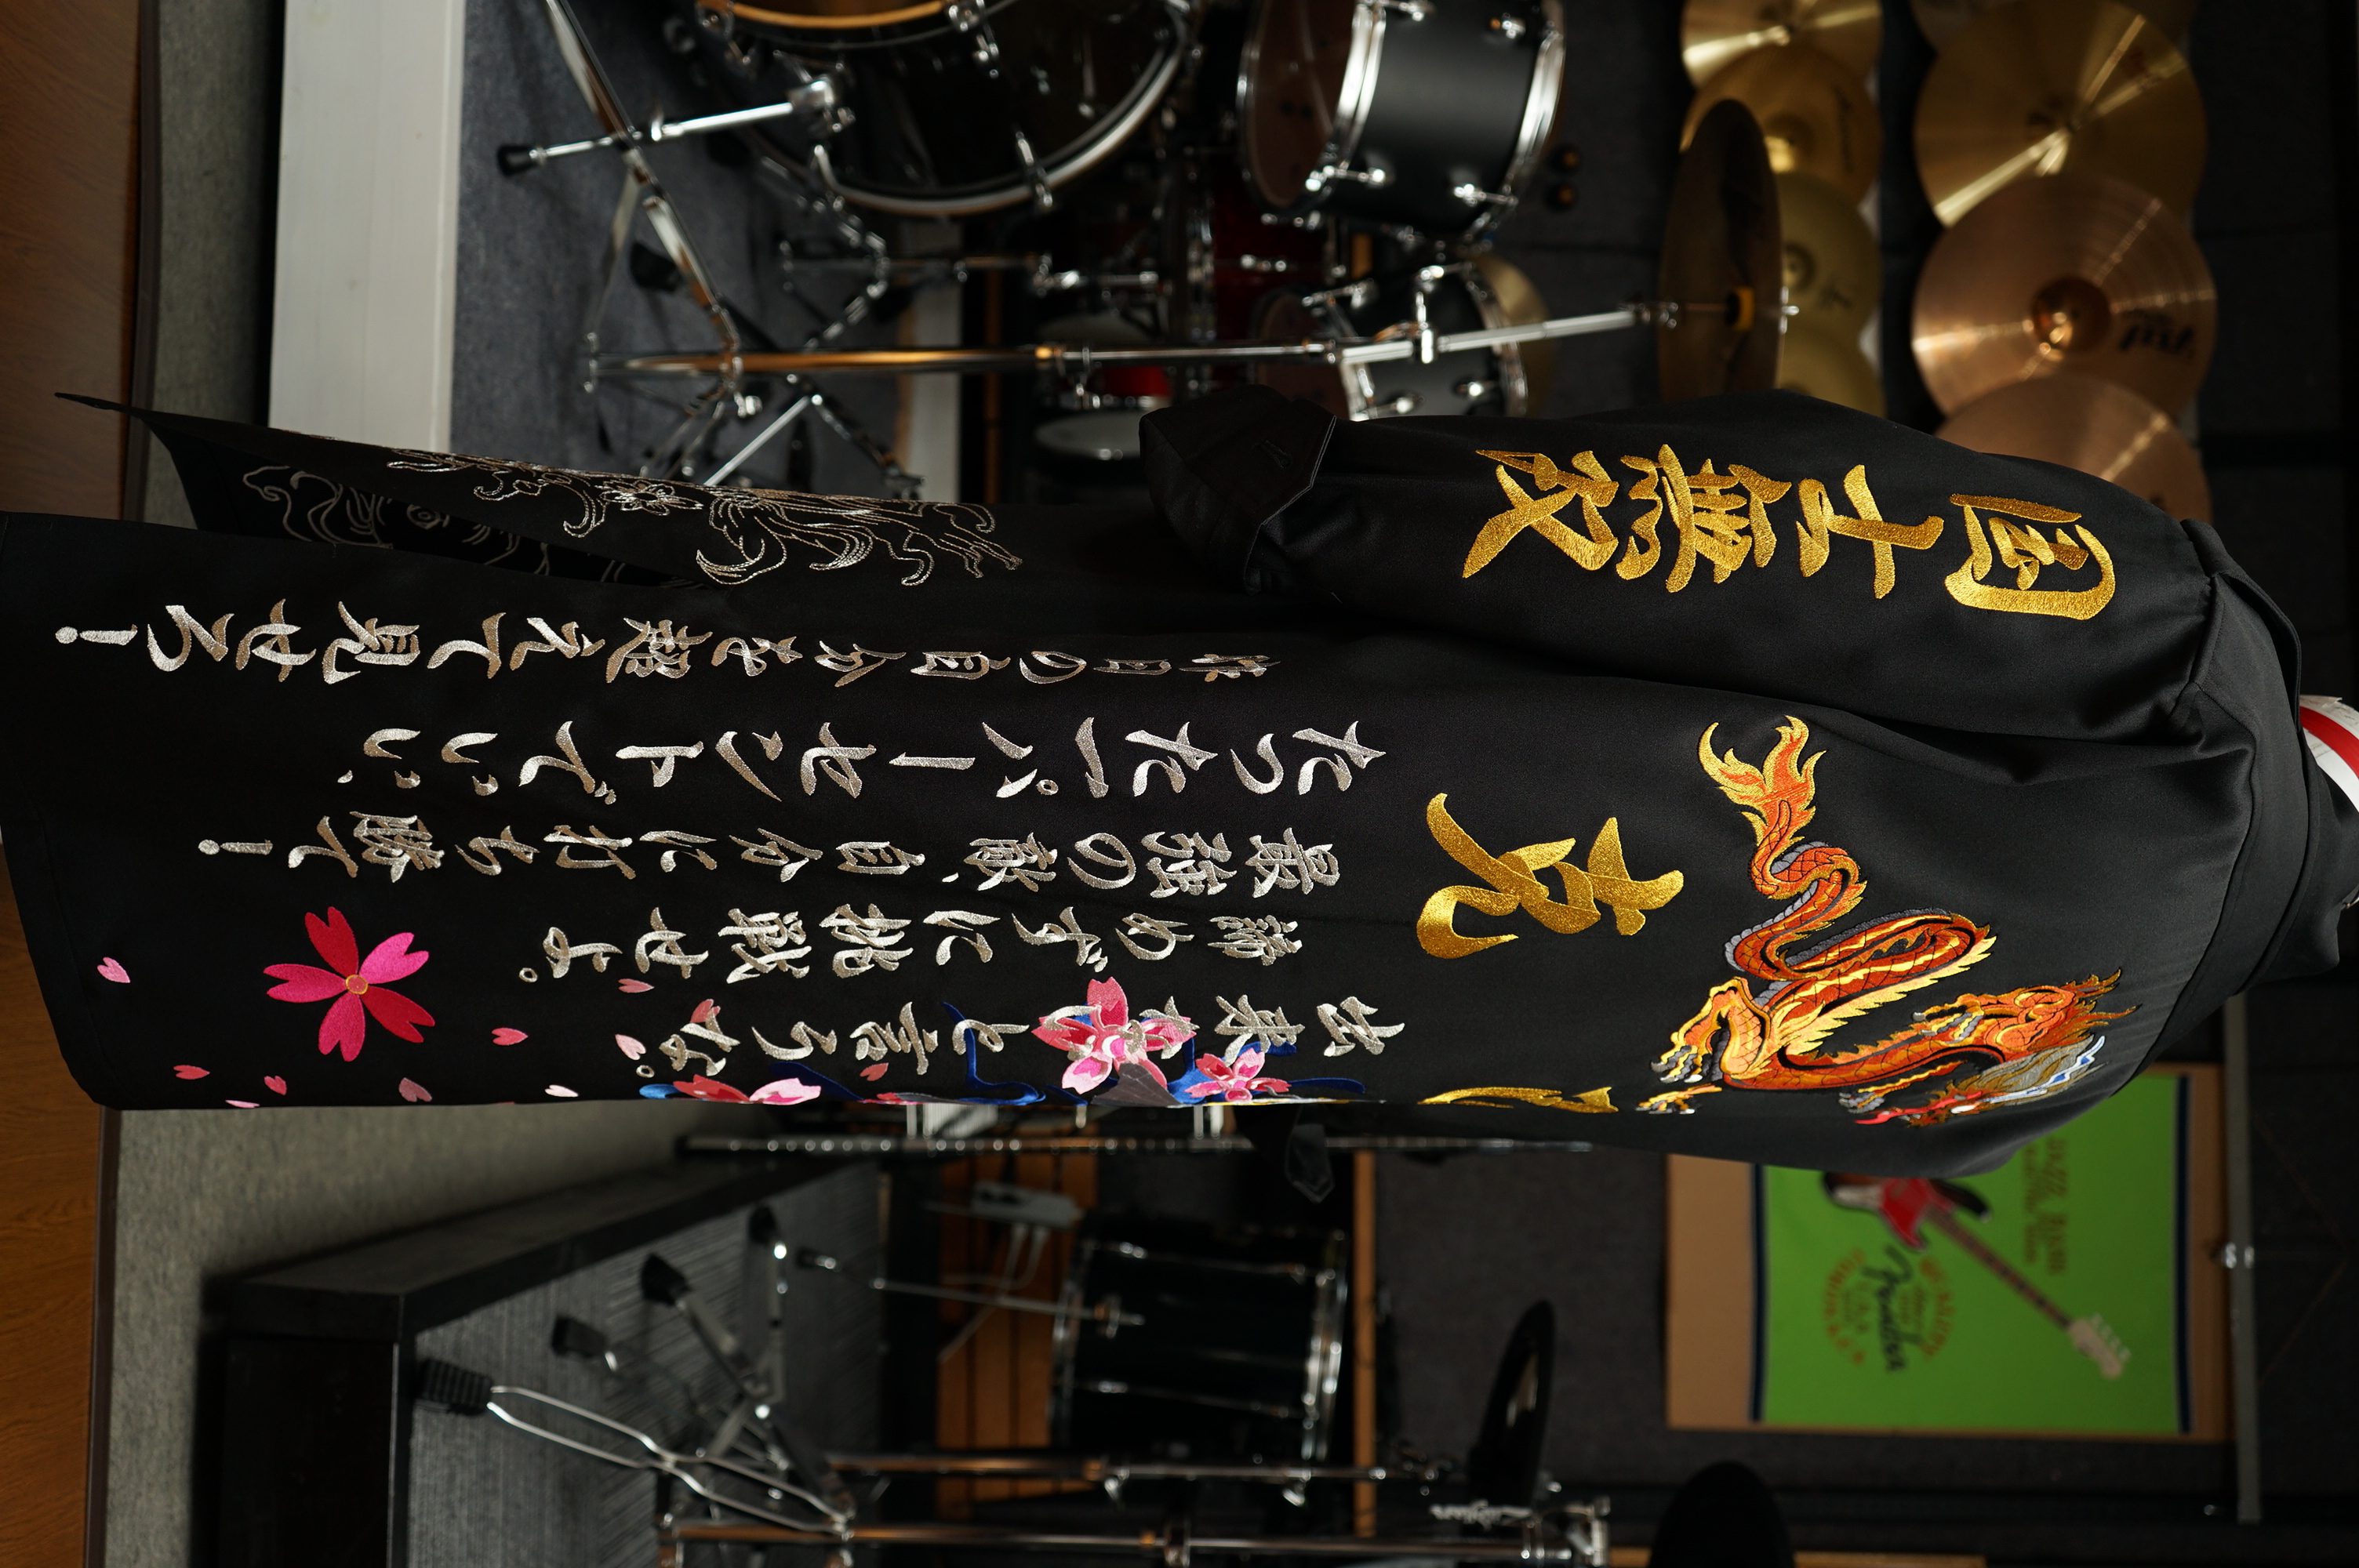 出来ないと言うな。
諦めずに挑戦せよ。
最強の敵、自分に打ち勝て！
たった一パーセントでいい、
昨日の自分を超えて見せろ！
国士無双
JAZZ BASS
Fender